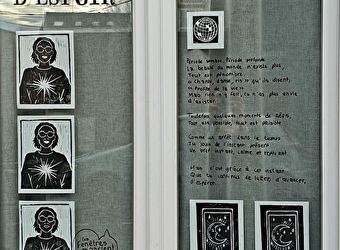 D'ESPOIR
Période sombre, Période profonde
La beauté du monde n'existe plus,
Tout est pénombre.
« Chante, danse, ris » qu'ils disent,
« Profite de la vie »
Mais rien n'y fait, tu n'as plus envie
d'exister.
Toutefois quelques moments de répis,
Tout est possible, tout est paisible
Comme un arrêt dans le temps
Tu jouis de l'instant présent
Un bref instant, calme et reposant
c'est grâce à cet instant
Que tu continues de lutter, d'avancer,
d'espérer.
Fenêtres